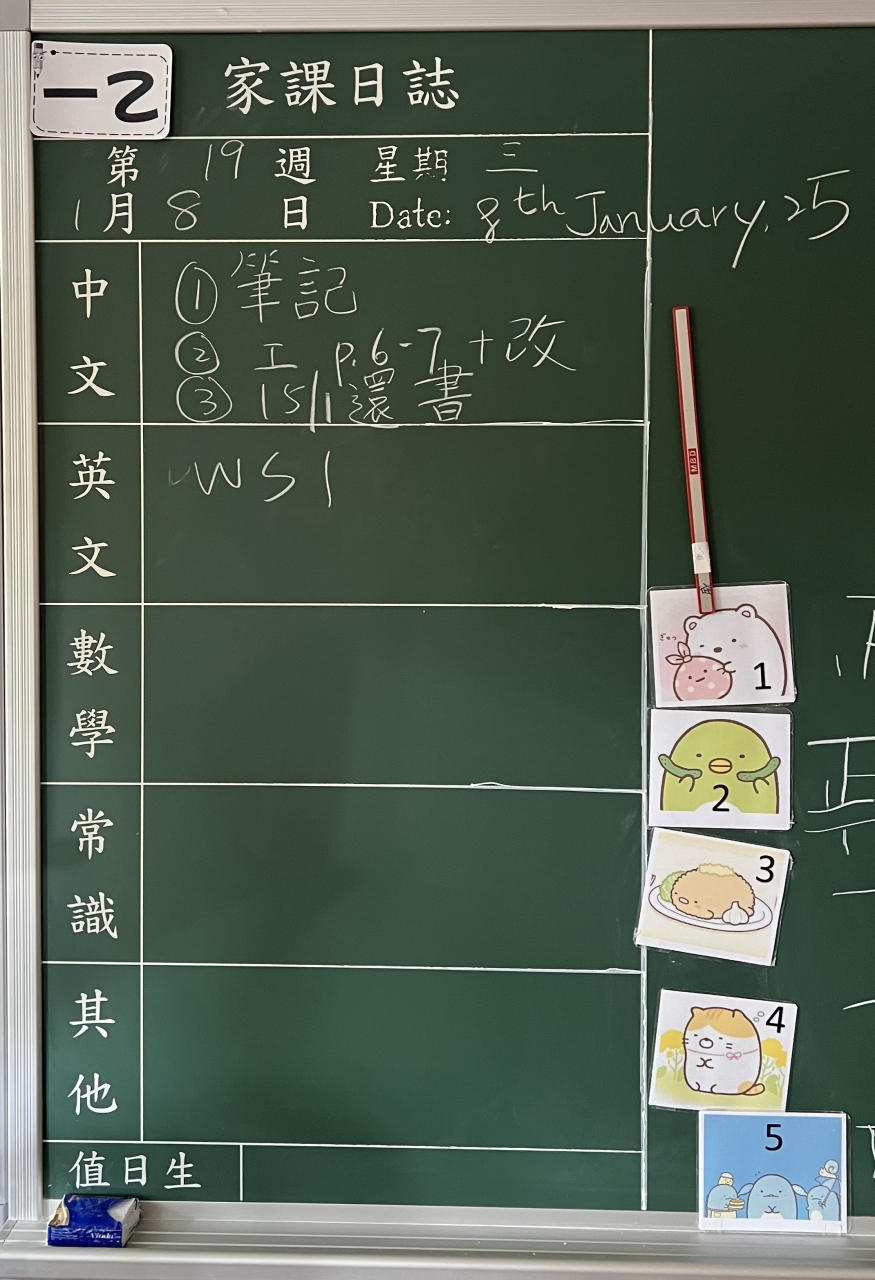 一乙
家課日誌
第 19 週 星期 三
1 月 8 日 Date: 8th January, 25
中文
① 筆記
② 工 p.6-7 +改
③ 15/1 還書
英文
WS1
數學
常識
其他
值日生
MBD
ぎゅっ
1
2
3
4
5